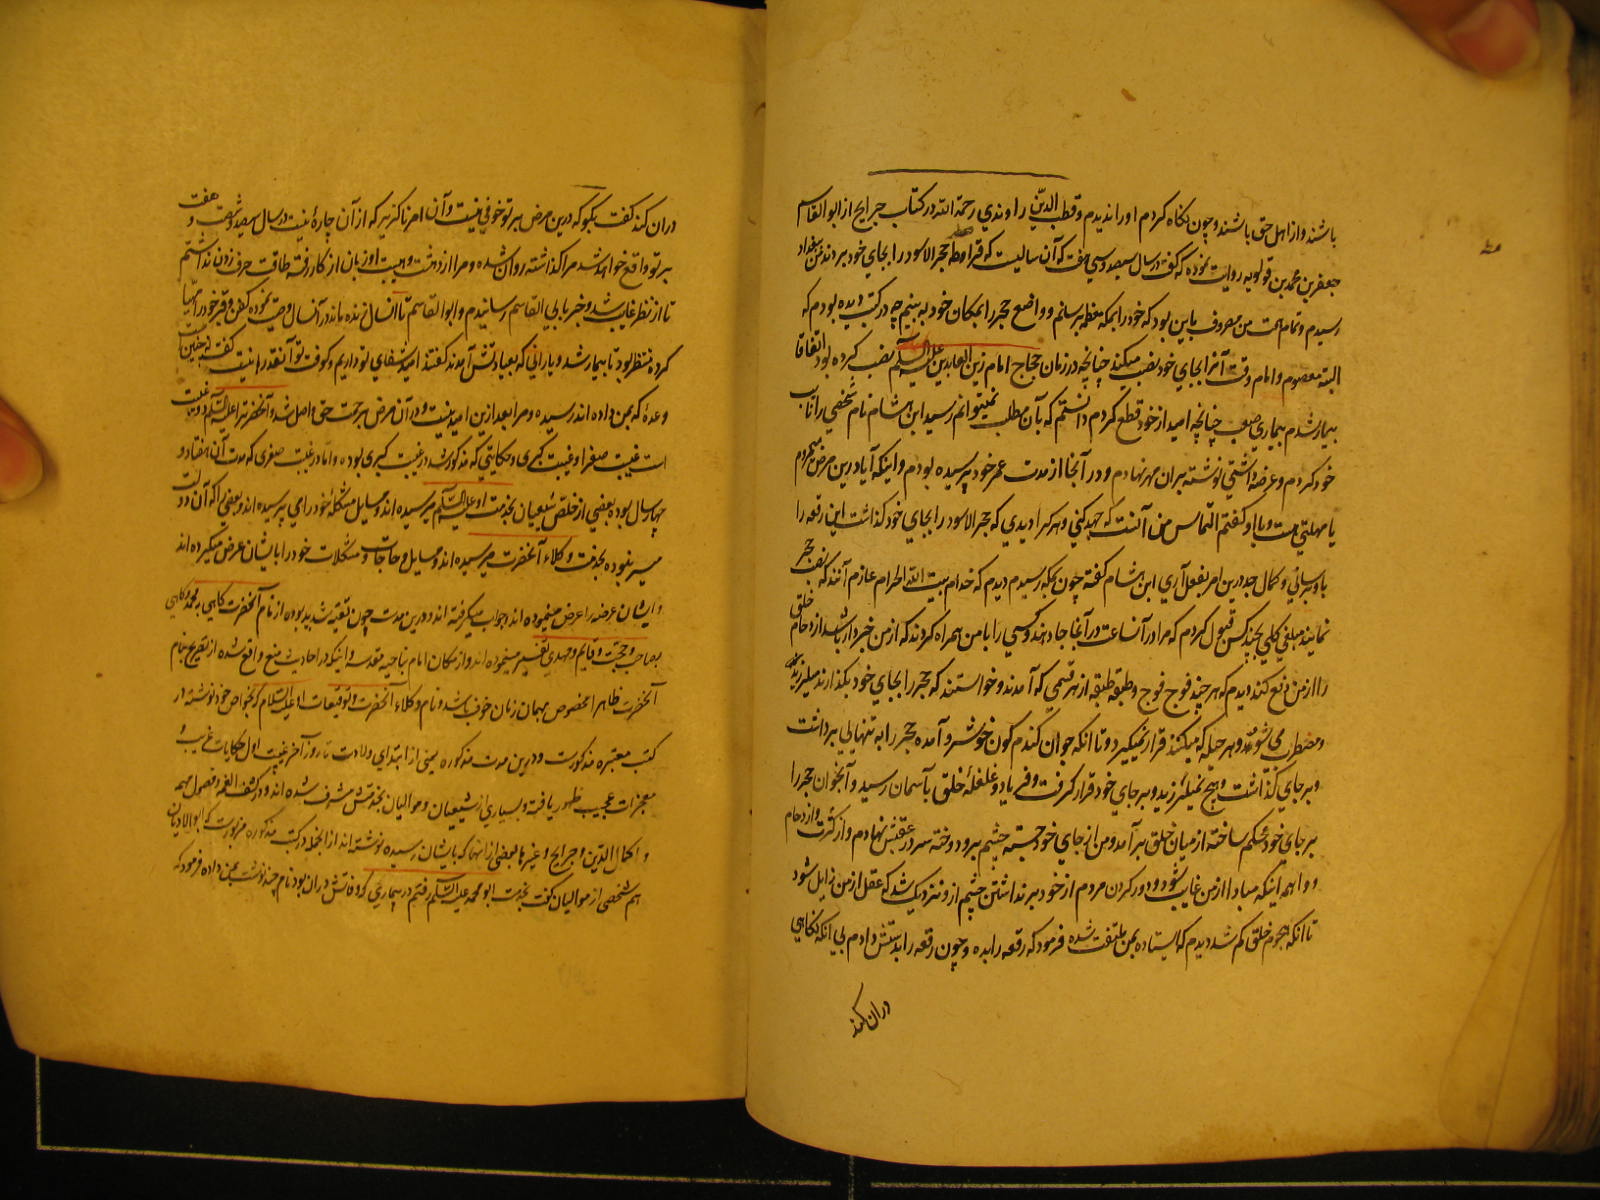 باشند و از اهل حق باشند و چون نگاه کردم او را ندیدم و قطب الدین راوندی رحمة الله در کتاب جرایح از ابو القاسم
جعفر بن محمد بن قولویه روایت نموده که گفت در سال سیصد و سی و هفت که آن سالیست که قرامطه حجر الاسود را بجای خود بردند من ببغداد
رسیدم و تمام همت من مصروف باین بود که خود را بمکه معظمه برسانم و واضع حجر را بمکان خود به بینم چه در کتب دیده بودم که
البته معصوم و امام وقت آنرا بجای خود نصب میکند چنانچه در زمان حجاج امام زین العابدین علیه السلام نصب کرده بود اتفاقا
بیمار شدم بیماری صعب چنانچه امید از خود قطع کردم دانستم که بآن مطلب نمیتوانم رسید ابن هشام نام شخصی را نایب
خود کردم و عرضه داشتی نوشته بران مهر نهادم و در آنجا از مدت عمر خود پرسیده بودم و اینکه آیا درین مرض میمیرم
یا مهلتی هست و با او گفتم التماس من آنست که جهد کنی و هر کرا دیدی که حجر الاسود را بجای خود گذاشت این رقعه را
باو برسانی و کمال جد درین امر بفعل آری ابن هشام گفته چون بمکه رسیدم دیدم که خدام بیت الله الحرام عازم آنند که نصب حجر
نمایند مبلغی کلی بچند کس قبول کردم که مرا در آنساعت در آنجا جا دهند و کسی را با من همراه کردند که از من خبردار باشد ازدحام خلق
را از من دفع کند دیدم که هر چند فوج فوج و طبقه طبقه از هر قسمی که آمدند و خواستند که حجر را بجای خود بگذارند میلرزید
و مضطرب می شد و بهر حیله که میکنند قرار نمیگیرد و تا آنکه جوان گندم گون خوشرو آمده حجر را به تنهایی برداشت
و بر جای گذاشت و هیچ نمیلرزید و بر جای خود قرار گرفت و فریاد و غلغلهٔ خلق بآسمان رسید و آنجوان حجر را
بر جای خود محکم ساخته از میان خلق برآمد و من از جای خود جسته چشم برو دوخته سر در عقبش نهادم و از کثرت و ازدحام
و واهمه اینکه مبادا از من غایب شود و دور کردن مردم از خود و برنداشتن چشم ازو نزدیک شد که عقل از من زایل شود
تا آنکه هجوم خلق کم شد دیدم که ایستاده بمن ملتفت شده فرمود که رقعه را بده و چون رقعه را بدستش دادم بی آنکه نگاهی
دران کند
دران کند گفت بگو که درین مرض بر تو خوفی نیست و آن امر ناگزیر که از آن چارهٔ نیست در سال سیصد و شصت و هفت
بر تو واقع خواهد شد مرا گذاشته روان شده و مرا از دهشت و هیبت او زبان از کار رفته طاقت حرف زدن نداشتم
تا از نظر غایب شد و خبر بابی القاسم رسانیدم و ابو القاسم تا آنسال زنده ماند در آنسال وصیت نموده کفن و قبر خود را مهیا
کرده منتظر بود تا بیمار شد و یارانی که بعیادتش آمدند گفتند امید شفای تو داریم و کوفت تو آنقدرها نیست گفت نه چنین است
وعدهٔ که بمن داده اند رسیده و مرا بعد ازین امید نیست و در آن مرض برحمت حق واصل شد و آنحضرت را علیه السلام دو غیبت
است غیبت صغرا و غیبت کبری و حکایتی که مذکور شد در غیبت کبری بوده و اما در غیبت صغری که مدت آن هفتاد و
چهار سال بود بعضی از خلص شیعیان بخدمت او علیه السلام میرسیده اند و مسایل مشکلهٔ خود را می پرسیده اند و بعضی را که آن دولت
میسر نبوده بخدمت وکلاء آنحضرت میرسیده اند و مسایل و حاجات و مشکلات خود را بایشان عرض میکرده اند
و ایشان عرضه را عرض مینموده اند و جواب میگرفته اند و درین مدت چون تقیه شدید بوده از نام آنحضرت گاهی به محمد و گاهی
بصاحب و حجت و قایم و مهدی تعبیر مینموده اند و از مکان امام بناحیه مقدسه و اینکه در احادیث منع واقع شده از تصریح بنام
آنحضرت ظاهرا مخصوص بهمان زمان خوف باشد و نام وکلاء آنحضرت و توقیعات او علیه السلام که بخواص خود نوشته در
کتب معتبره مذکورست و درین مدت مذکوره یعنی از ابتدای ولادت تا روز آخر غیبت اول حکایات غریب و
معجزات عجیب ظهور یافته و بسیاری از شیعیان و موالیان بخدمتش مشرف شده اند و در کشف الغمه و فصول مهمه
و اکمال الدین و جرایح و غیرها بعضی از انها که بایشان رسیده نوشته اند از انجمله در کتب مذکوره مزبورست که ابو الادیان
هم شخصی از موالیان گفت بخدمت ابو محمد علیه السلام رفتم در بیماریی که وفاتش دران بود نامهٔ چند نوشته بمن داده فرمود که